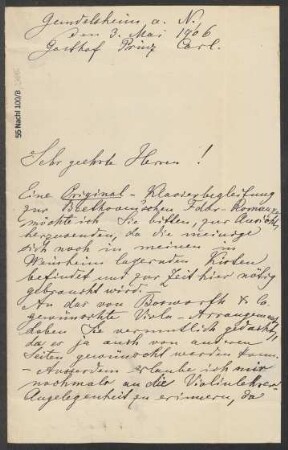 55 Nachl 100/B
Gundelsheim, a. N.,
den 3. Mai 1906
Gasthof Prinz Carl.
Sehr geehrte Herren!
Eine Original-Klavierbegleitung
zur Beethoven'schen F dur-Romanze
möchte ich Sie bitten, zur Ansicht
herzusenden, da die meinige
sich noch in meinen in
Weinheim lagernden Kisten
befindet und zur Zeit hier nötig
gebraucht wird. -
An das von Bosworth & Co
gewünschte Viola-Arrangement
haben Sie vermutlich gedacht,
da es ja auch von anderen
Seiten gewünscht werden kann.
- Ausserdem erlaube ich mir
nochmals an die Violinlehrer-
Angelegenheit zu erinnern, da